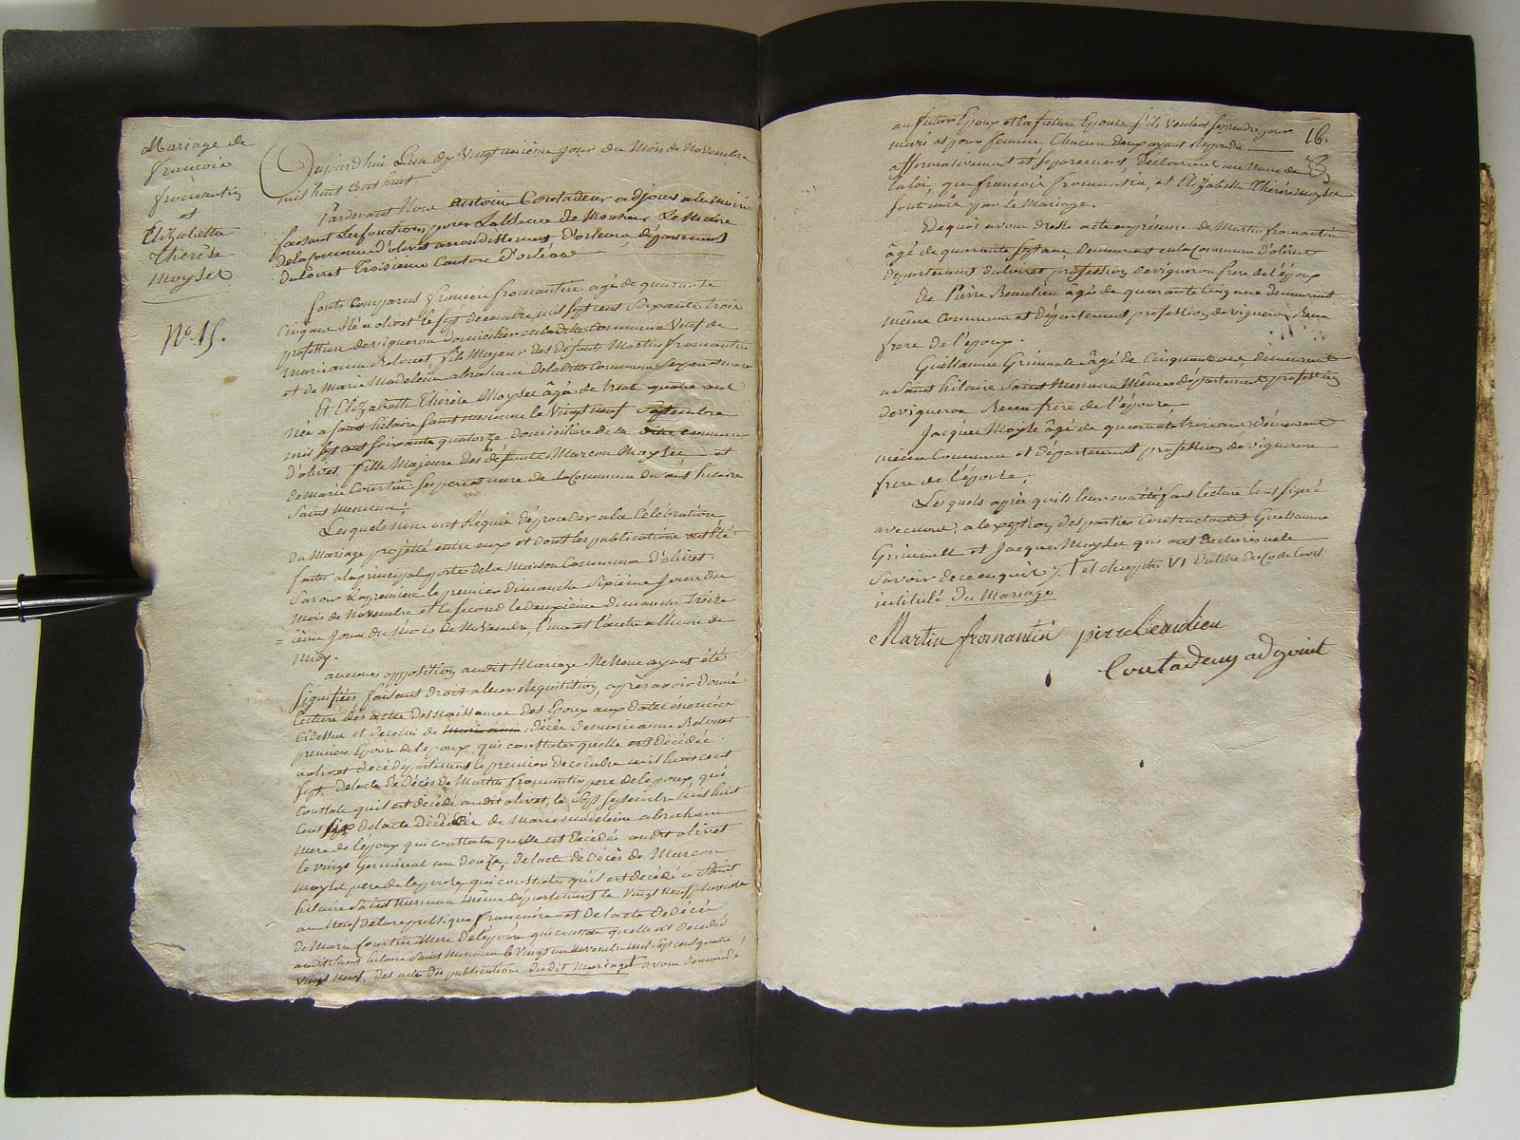 Mariage de
francois
fromentin
et
Elizabette
Therèse
Moyset
N° 15.
aujourdhui Lundy Vingt unième Jour du Mois de Novembre
mil huit cent huit
Pardevant Nous antoine Contadeur adjoint à la mairie
faisant Les fonctions pour Labsence de Monsieur Le Maire
de la commune d'olivet arrondissement d'orleans, département
du Loiret Troisieme Canton d'orléans
Sont Comparus francois fromentin agé de quarante
Cinq ans Né a olivet le sept decembre mil sept cent Soixante trois
profession de vigneron domicilié en la ditte Commune Veuf de
marie anne Relouet fils Majeur des defunts Martin fromentin
et de Marie Madeleine abraham de la ditte Commune ses pere et mere
Et Elizabette Therèse Moyset âgée de trente quatre ans
Née a saint hilaire saint mesmin le Vingt neuf Septembre
mil sept cent soixante quatorze domiciliée de la ditte commune
d'olivet, fille Majeure des defunts Marcou Moyset et
de Marie Courtin ses pere et mere de la Commune de saint hilaire
saint mesmin;
Lesquels nous ont Réquis de procéder a la Célébration
du Mariage projetté entre eux et dont les publications ont été
faites a la principal porte de la Maison Commune d'olivet
Savoir La premiere le premier dimanche Sixième Jour du
Mois de Novembre et la second le deuxième dimanche Treize
= ième Jour du Mois de Novembre, l'une et l'autre a l'heure de
midy.
aucunes opposition audit Mariage Ne Nous ayant été
signifiées, faisant droit a leur Réquisition, après avoir donné
lecture des actes des Naissances des Epoux aux dates énoncées
cidessus et de celui de décès de marie anne Relouet
premiere Epouse de l'epoux, qui constate quelle est décédée
a olivet le premier decembre mil huit cent
sept. de l'acte de décès de Martin fromentin pere de l'epoux, qui
constate qu'il est décédé audit olivet, le Sept septembre mil huit
cent six de l'acte de décès de Marie madeleine abraham
mere de l'époux qui constate quelle est décédée audit olivet
le vingt Germinal an douze, de l'acte de décès de Marcou
Moyset pere de l'epouse, qui constate qu'il est décédé a Saint
hilaire Saint mesmin même département le vingt neuf pluviose
an Neuf de la republique française et de l'acte de décès
de Marie Courtin Mere de l'épouse qui constate quelle est décédée
audit Saint hilaire Saint Mesmin le Vingt un novembre mil sept cent quatre
vingt Neuf, des actes des publications du dit Mariage avons demandé
au futur Epoux et la future Epouse s'ils veulent se prendre pour
mari et pour femme, Chacun deux ayant repondu
affirmativement et séparement, déclarons au Nom de
la loi, que francois fromentin, et Elizabette Therèse Moyset
sont unis par le Mariage.
16.
De quoi avons dressé acte en présence de Martin fromentin
âgé de quarante sept ans, demeurant en la Commune d'olivet
département du loiret profession de vigneron frere de l'époux
de Pierre Beaulieu âgé de quarante cinq ans demeurant
même Commune et département profession de vigneron Beau
frere de l'époux.
Guillaume Grimault âgé de cinquante ans, demeurant
a Saint hilaire Saint Mesmin Même département profession
de vigneron Beau frere de l'épouse,
Jacques Moyse âgé de quarante trois ans demeurant
même Commune et département profession de vigneron
frere de l'épouse,
Lesquels après qu'ils leur en a été fait lecture l'ont signé
avec nous, a l'exception des parties contractantes Guillaume
Grimault et Jacques Moyset qui ont declarés ne le
Savoir de ce enquis et chapitre VI du titre du Code Civil
intitulé du Mariage
Martin fromantin pierre beaulieu
Contadeur adjoint